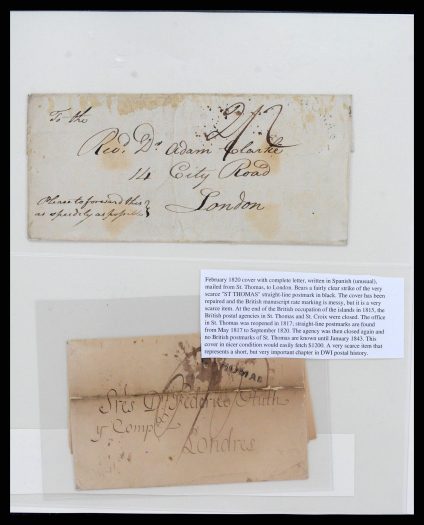 To the
2/2
Revd. Dr. Adam Clarke
14 City Road
London
Please to forward this
as speedily as possible
February 1820 cover with complete letter, written in Spanish (unusual),
mailed from St. Thomas, to London. Bears a fairly clear strike of the very
scarce "ST THOMAS" straight-line postmark in black. The cover has been
repaired and the British manuscript rate marking is messy, but it is a very
scarce item. At the end of the British occupation of the islands in 1815, the
British postal agencies in St. Thomas and St. Croix were closed. The office
in St. Thomas was reopened in 1817; straight-line postmarks are found
from May 1817 to September 1820. The agency was then closed again and
no British postmarks of St. Thomas are known until January 1843. This
cover in nicer condition would easily fetch $1200. A very scarce item that
represents a short, but very important chapter in DWI postal history.
THOMAS
Sres Dn Federico Huth
y Compa.
Londres